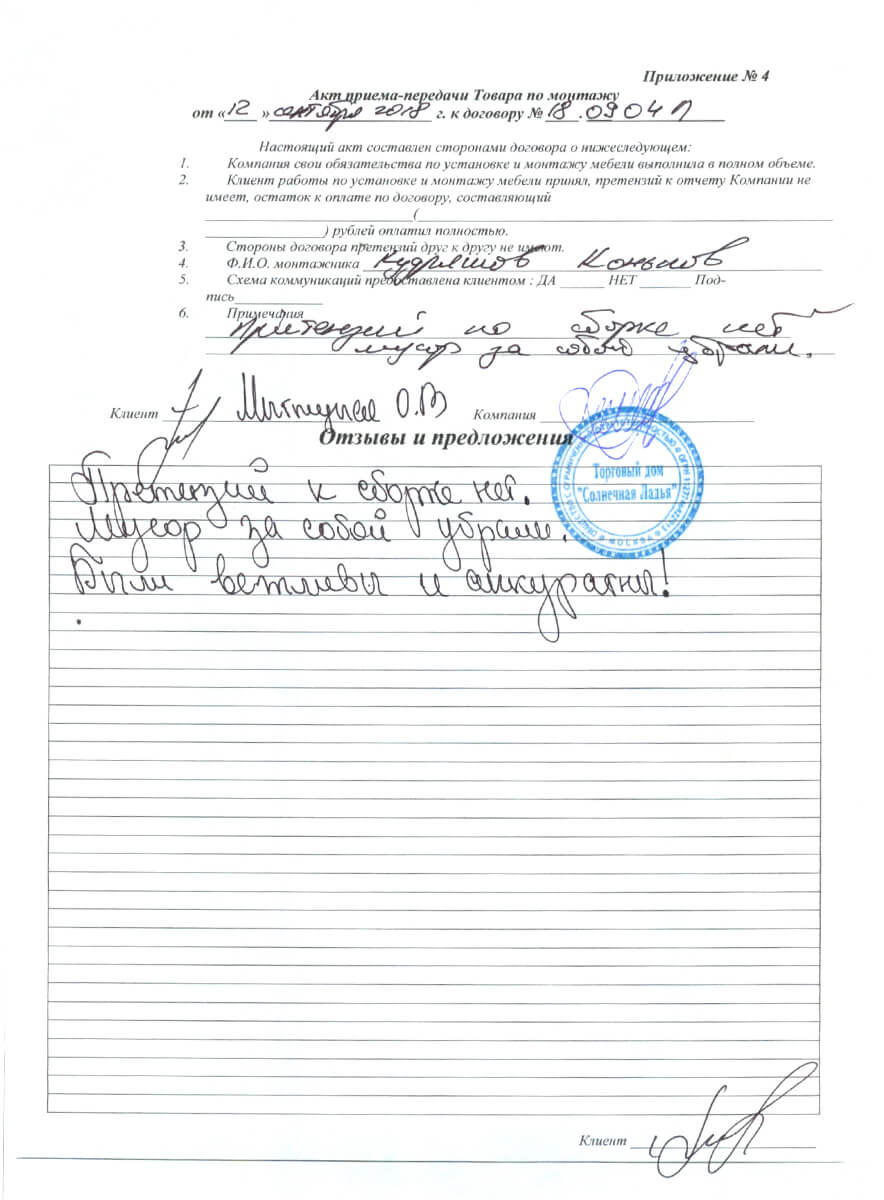 Приложение № 4
Акт приема-передачи Товара по монтажу
от «12» сентября 2018 г. к договору № 18.0904П
Настоящий акт составлен сторонами договора о нижеследующем:
1. Компания свои обязательства по установке и монтажу мебели выполнила в полном объеме.
2. Клиент работы по установке и монтажу мебели принял, претензий к отчету Компании не
имеет, остаток к оплате по договору, составляющий
(
) рублей оплатил полностью.
3. Стороны договора претензий друг к другу не имеют.
4. Ф.И.О. монтажника Кудряшов
5. Схема коммуникаций предоставлена клиентом : ДА НЕТ Под-
пись
6. Примечания
Притензий по сборке нет
мусор за собой убрали.
Клиент О.В Компания
Отзывы и предложения
Торговый дом
"Солнечная Ладья"
МОСКВА
Претензий к сборке нет.
Мусор за собой убрали.
Были ветливы и аккуратны!
.
Клиент